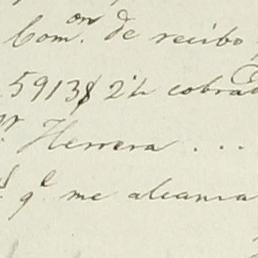 Com.on de recibo
5913$ 2 1/2 cobrad
Herrera ...
qe me alcanza